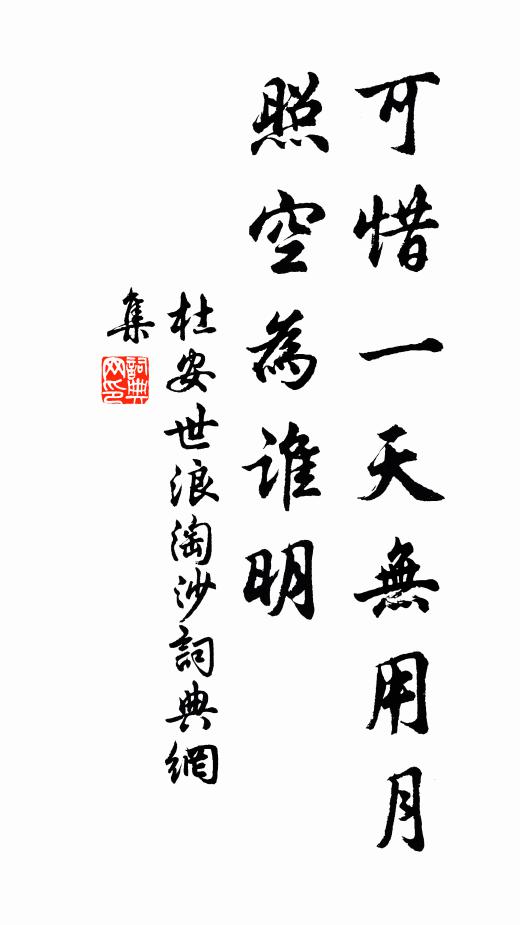 可惜一天無用月
照空為誰明
杜安世浪淘沙詞典網
集
詞典
网印